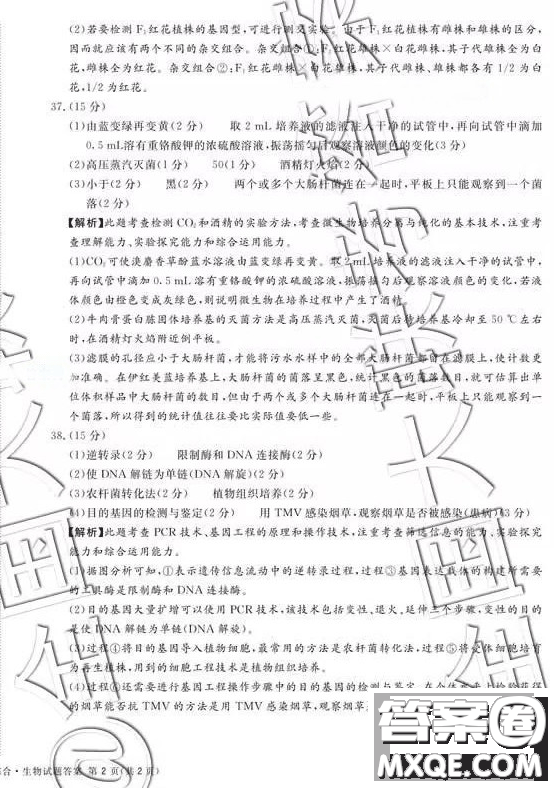 (2)若要检测F₁红花植株的基因型,可进行测交实验。由于F₁红花植株有雌株和雄株的区分,
因而此应该有两个不同的杂交组合。杂交组合①:F₁红花雌株×白花雄株,其子代雄株全为白
花,雌株全为红花。杂交组合②:F₁红花雄株×白花雌株,其子代雌株、雄株都各有1/2为白
花,1/2为红花。
37.(15分)
(1)由蓝变绿再变黄(2分) 取2 mL培养液的滤液注入干净的试管中,再向试管中滴加
0.5 mL溶有重铬酸钾的浓硫酸溶液,振荡摇匀后观察溶液颜色的变化(3分)
(2)高压蒸汽灭菌(1分) 50(1分) 酒精灯火焰(2分)
(3)小于(2分) 黑(2分) 两个或多个大肠杆菌连在一起时,平板上只能观察到一个菌
落(2分)
【解析】此题考查检测CO₂和酒精的实验方法,考查微生物培养分离与纯化的基本技术,注重考
查理解能力、实验探究能力和综合运用能力。
(1)CO₂可使溴麝香草酚蓝水溶液由蓝变绿再变黄。取2 mL培养液的滤液注入干净的试管中,
再向试管中滴加0.5 mL溶有重铬酸钾的浓硫酸溶液,振荡摇匀后观察溶液颜色的变化,若液
体颜色由橙色变成灰绿色,则说明微生物在培养过程中产生了酒精。
(2)牛肉膏蛋白胨固体培养基的灭菌方法是高压蒸汽灭菌,灭菌后待培养基冷却至50 ℃左右
时,在酒精灯火焰附近倒平板。
(3)滤膜的孔径应小于大肠杆菌,才能将污水水样中的全部大肠杆菌都留在滤膜上,使计数更
加准确。在伊红美蓝培养基上,大肠杆菌的菌落呈黑色,统计黑色的菌落数目,就可估算出单
位体积样品中大肠杆菌的数目,但由于两个或多个大肠杆菌连在一起时,平板上只能观察到一
个菌落,所以得到的统计值往往要比实际值要低一些。
38.(15分)
(1)逆转录(2分) 限制酶和DNA连接酶(2分)
(2)使DNA解链为单链(DNA解旋)(2分)
(3)农杆菌转化法(2分) 植物组织培养(2分)
(4)目的基因的检测与鉴定(2分) 用TMV感染烟草,观察烟草是否被感染(患病)(3分)
【解析】此题考查PCR技术、基因工程的原理和操作技术,注重考查筛选信息的能力、实验探究
能力和综合运用能力。
(1)据图分析可知,①表示遗传信息流动中的逆转录过程,过程③基因表达载体的构建所需要
的工具酶是限制酶和DNA连接酶。
(2)目的基因大量扩增可以使用PCR技术,该技术包括变性、退火、延伸三个步骤,变性的目的
是使DNA解链为单链(DNA解旋)。
(3)过程④将目的基因导入植物细胞,最常用的方法是农杆菌转化法,过程⑤将受体细胞培育
为再生植株,用到的细胞工程技术是植物组织培养。
(4)过程⑥还需要进行基因工程操作步骤中的目的基因的检测与鉴定,在个体水平上检验获得
的烟草能否抗TMV的方法是用TMV感染烟草,观察烟草
综合·生物试题答案 第2页(共2页)
答案圈
MXQE.COM